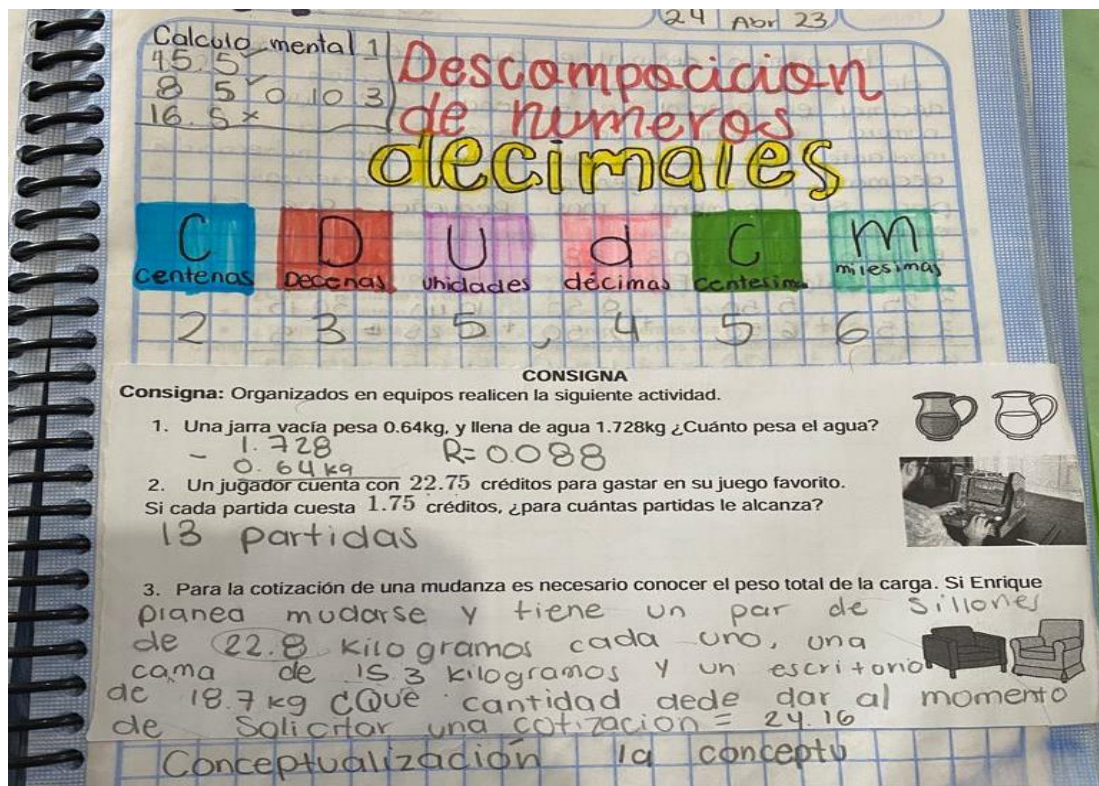 24 Abr 23
Calculo mental 1
15. 5 ✓
8 5 ✓ 0 10 3
16. 5 x
Descompocicion
de numeros
decimales
C D U d C m
Centenas Decenas Unidades décimas Centesima milesimas
2 3 5 . 4 5 6
CONSIGNA
Consigna: Organizados en equipos realicen la siguiente actividad.
1. Una jarra vacía pesa 0.64kg, y llena de agua 1.728kg ¿Cuánto pesa el agua?
- 1.728 R=0.088
0.64kg
2. Un jugador cuenta con 22.75 créditos para gastar en su juego favorito.
Si cada partida cuesta 1.75 créditos, ¿para cuántas partidas le alcanza?
13 partidas
3. Para la cotización de una mudanza es necesario conocer el peso total de la carga. Si Enrique
planea mudarse y tiene un par de sillones
de 22.8 kilogramos cada uno, una
cama de 15.3 kilogramos y un escritorio
de 18.7 kg ¿Que cantidad dede dar al momento
de Solicitar una cotización = 24.16
Conceptualización la conceptu